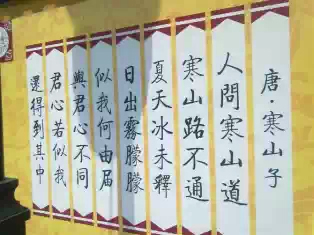 唐·寒山子
人問寒山道
寒山路不通
夏天冰未釋
日出霧朦朦
似我何由届
與君心不同
君心若似我
還得到其中